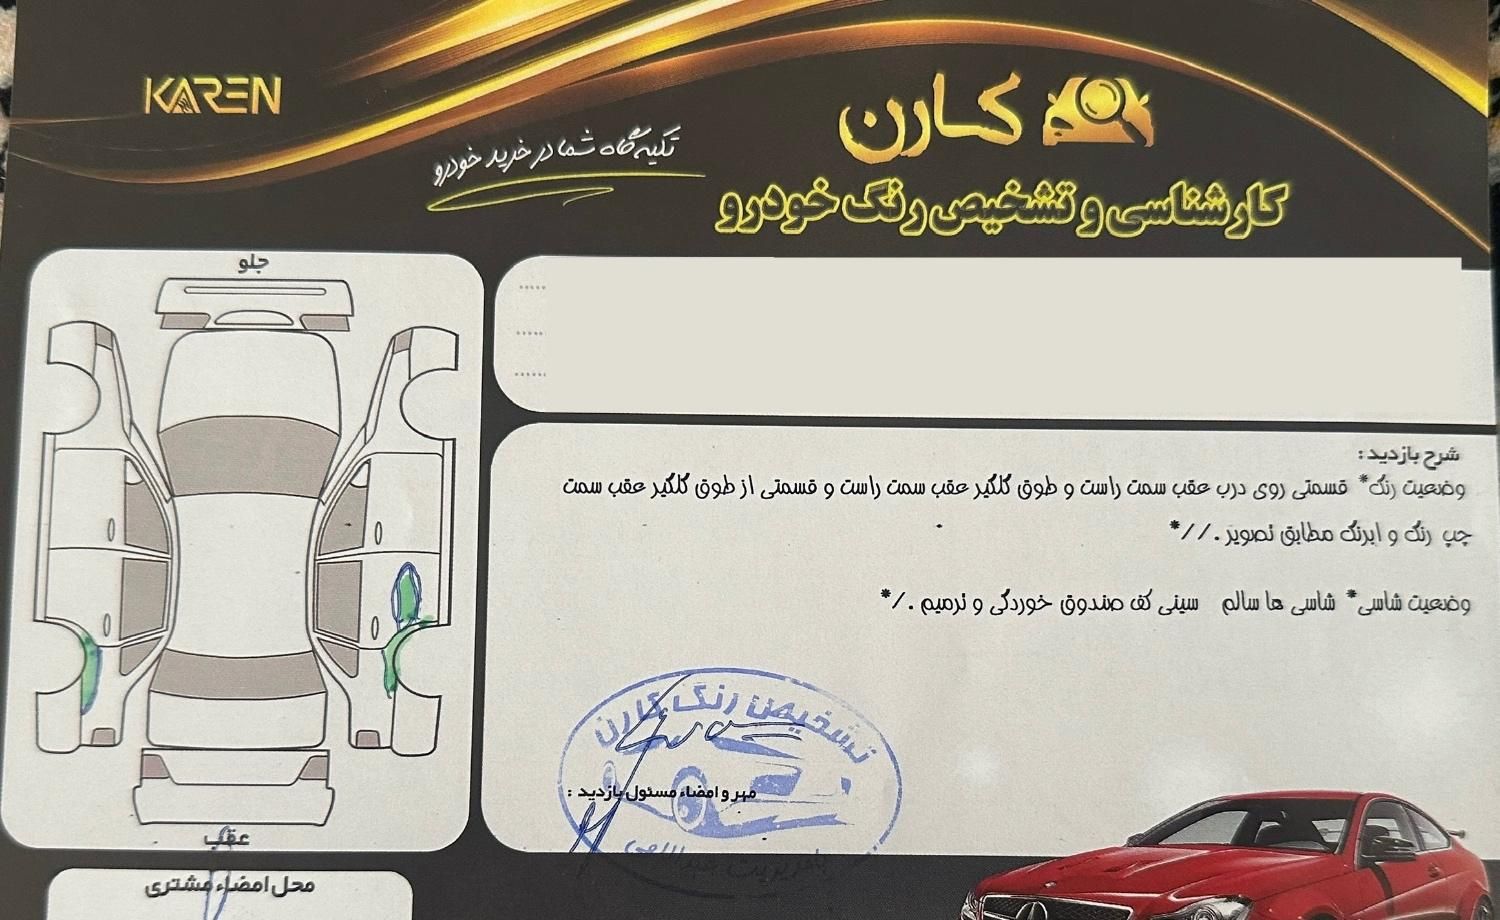 KAREN
کارن
تکیه گاه شما در خرید خودرو
کارشناسی و تشخیص رنگ خودرو
جلو
عقب
محل امضاء مشتری
شرح بازدید :
وضعیت رنگ* قسمتی روی درب عقب سمت راست و طوق گلگیر عقب سمت راست و قسمتی از طوق گلگیر عقب سمت
چپ رنگ و ابرنگ مطابق تصویر .//*
وضعیت شاسی* شاسی ها سالم سینی کف صندوق خوردگی و ترمیم ./*
تشخیص رنگ کارن
مهر و امضاء مسئول بازدید :